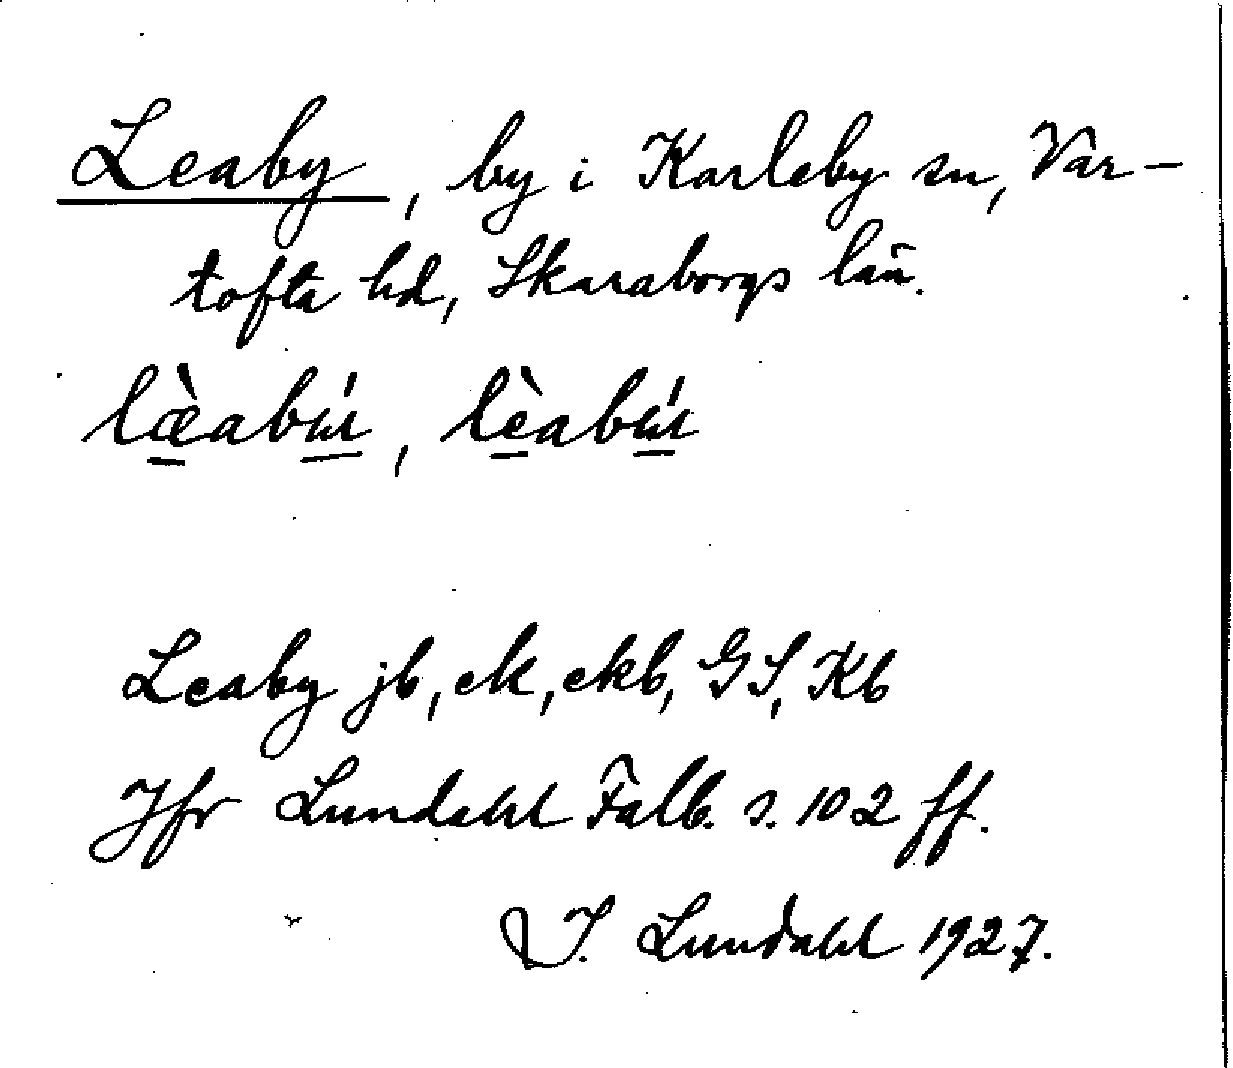 Leaby, by i Karleby sn, Var-
tofta hd, Skaraborgs län.
læ̀abúr, lèabúr
Leaby jb, ek, ekb, GS, Kb
Jfr Lundahl Falb. s. 102 ff.
I. Lundahl 1927.